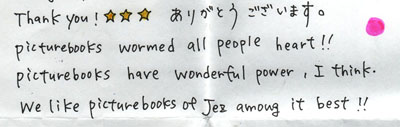 Thank you! ☆☆☆ ありがとうございます。
picturebooks wormed all people heart!!
picturebooks have wonderful power, I think.
We like picturebooks of Jez among it best!!